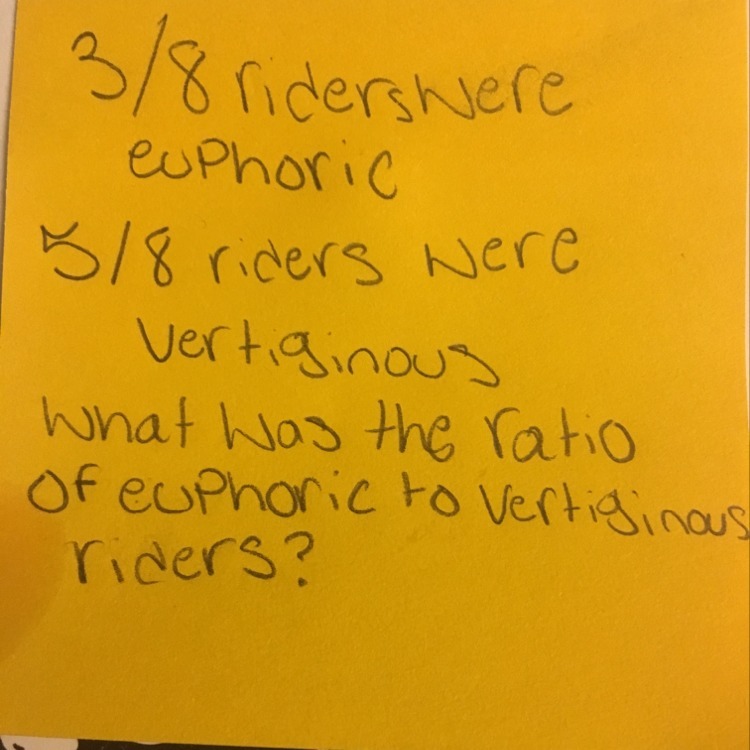 3/8 riders were
euphoric
5/8 riders were
vertiginous
What was the ratio
of euphoric to vertiginous
riders?